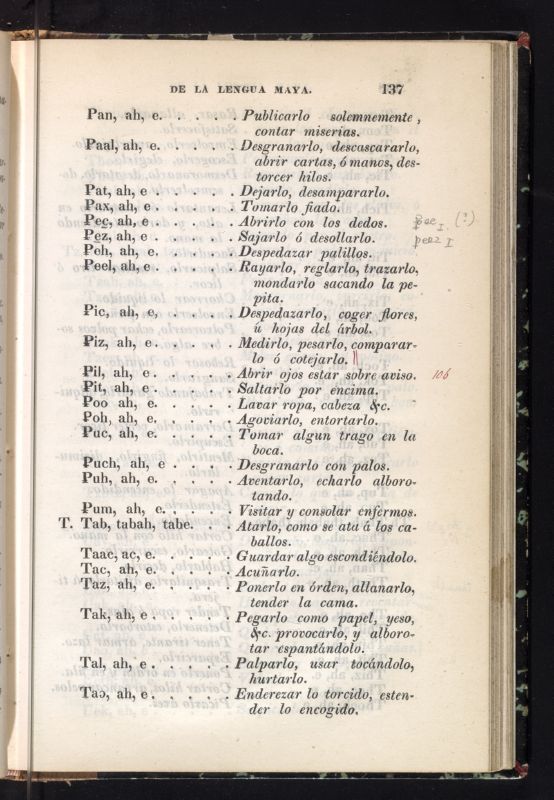 DE LA LENGUA MAYA. 137
Pan, ah, e. . . . . Publicarlo solemnemente,
contar miserias.
Paal, ah, e. . . . . Desgranarlo, descascararlo,
abrir cartas, ó manos, des-
torcer hilos.
Pat, ah, e . . . . . Dejarlo, desampararlo.
Pax, ah, e . . . . . Tomarlo fiado.
Pec, ah, e . . . . . Abrirlo con los dedos.
Pez, ah, e . . . . . Sajarlo ó desollarlo.
Peh, ah, e. . . . . Despedazar palillos.
Peel, ah, e . . . . . Rayarlo, reglarlo, trazarlo,
mondarlo sacando la pe-
pita.
Pic, ah, e, . . . . . Despedazarlo, coger flores,
ú hojas del árbol.
Piz, ah, e. . . . . Medirlo, pesarlo, comparar-
lo ó cotejarlo.
Pil, ah, e. . . . . Abrir ojos estar sobre aviso. 106
Pit, ah, e. . . . . Saltarlo por encima.
Poo ah, e. . . . . Lavar ropa, cabeza &c.
Poh, ah, e. . . . . Agoviarlo, entortarlo.
Puc, ah, e. . . . . Tomar algun trago en la
boca.
Puch, ah, e . . . . Desgranarlo con palos.
Puh, ah, e. . . . . Aventarlo, echarlo alboro-
tando.
Pum, ah, e. . . . . Visitar y consolar enfermos.
T. Tab, tabah, tabe. . . Atarlo, como se ata á los ca-
ballos.
Taac, ac, e. . . . . Guardar algo escondiéndolo.
Tac, ah, e. . . . . Acuñarlo.
Taz, ah, e. . . . . Ponerlo en órden, allanarlo,
tender la cama.
Tak, ah, e . . . . . Pegarlo como papel, yeso,
&c. provocarlo, y alboro-
tar espantándolo.
Tal, ah, e . . . . . Palparlo, usar tocándolo,
hurtarlo.
Taɔ, ah, e . . . . . Enderezar lo torcido, esten-
der lo encogido.